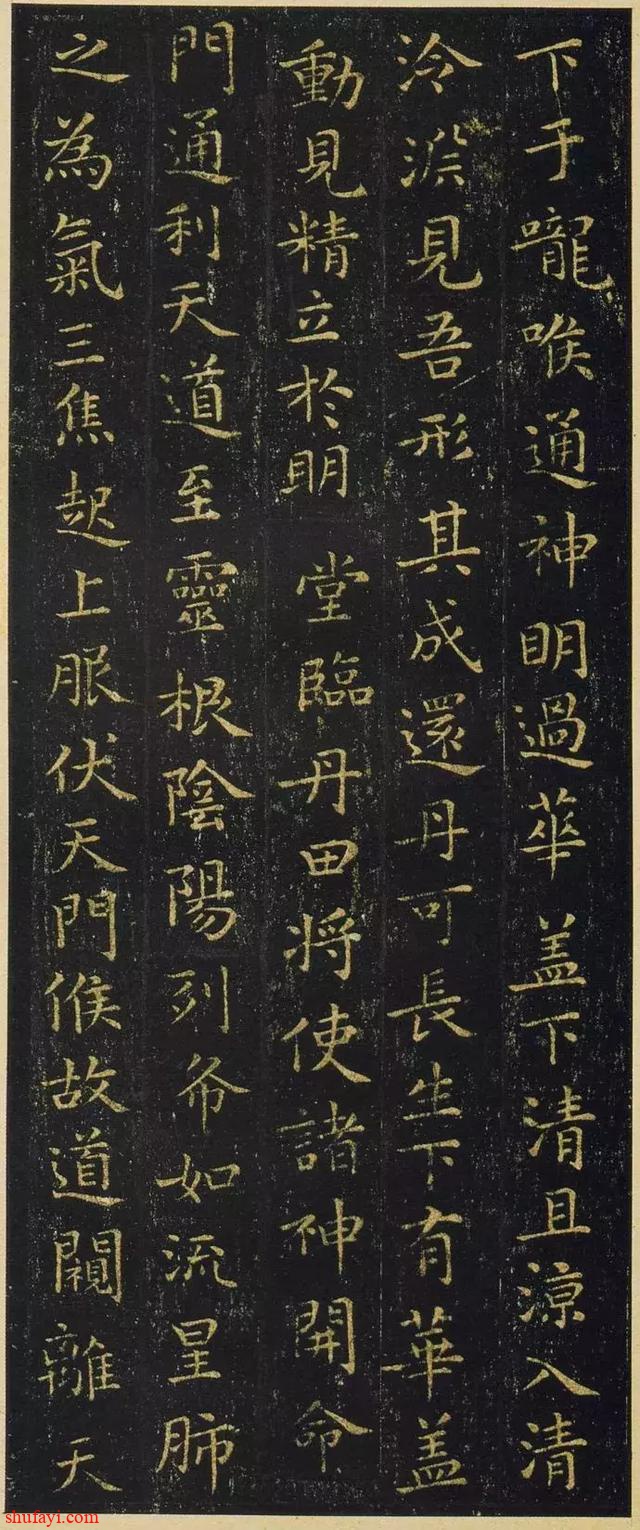 下于嚨喉通神明過華盖下清且涼入清
泠淵見吾形其成還丹可長生下有華盖
動見精立於明堂臨丹田将使諸神開命
門通利天道至靈根陰陽列布如流星肺
之為氣三焦起上服伏天門候故道闚離天
shufayi.com